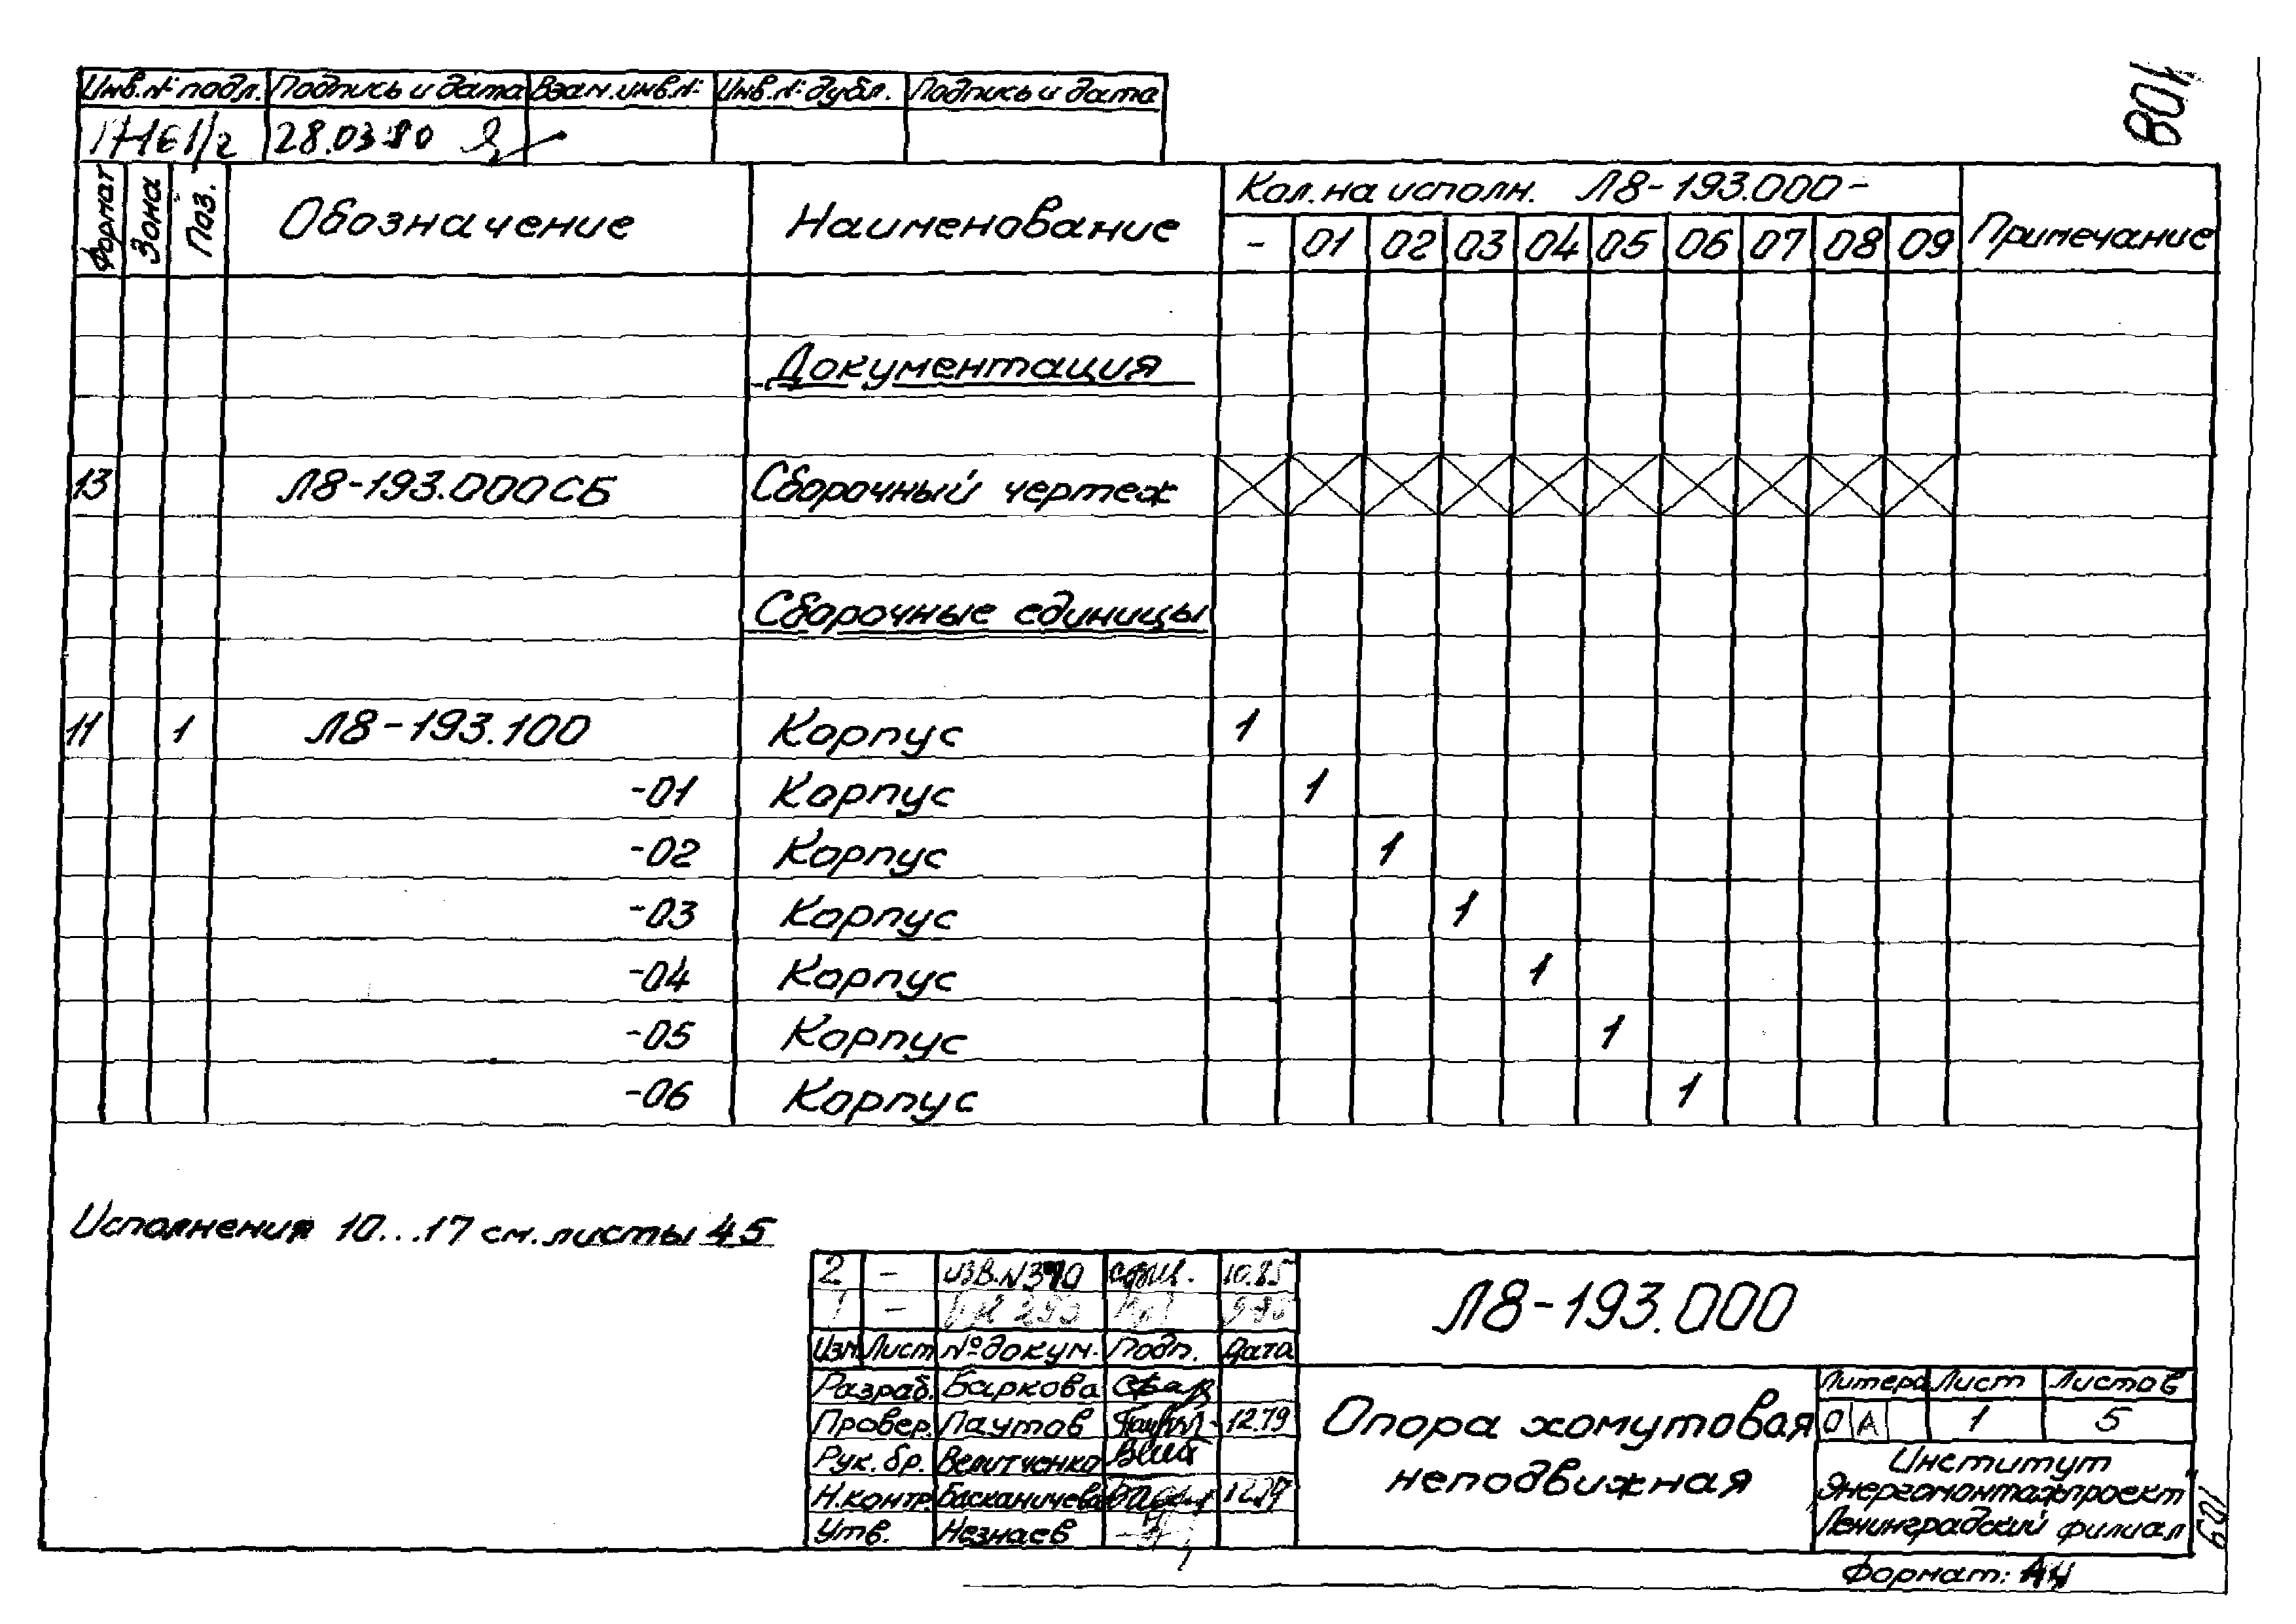 108
Инв.№ подл. Подпись и дата Взам.инв.№ Инв.№ дубл. Подпись и дата
17161/2 28.03.80
Формат Зона Поз. Обозначение Наименование Кол. на исполн. Л8-193.000- Примечание
- 01 02 03 04 05 06 07 08 09
Документация
13 Л8-193.000СБ Сборочный чертеж
Сборочные единицы
11 1 Л8-193.100 Корпус 1
-01 Корпус 1
-02 Корпус 1
-03 Корпус 1
-04 Корпус 1
-05 Корпус 1
-06 Корпус 1
Исполнения 10...17 см. листы 4 5
2 - изв.N390 10.85
1 -
Изм Лист № докум. Подп. Дата
Л8-193.000
Разраб. Баркова
Провер. Паутов 12.79
Рук. бр. Велитченко
Н.контр Басканичева 12.79
Утв. Незнаев
Опора хомутовая
неподвижная
Литера Лист Листов
О А 1 5
Институт
Энергомонтажпроект
Ленинградский филиал
Формат: А4
109